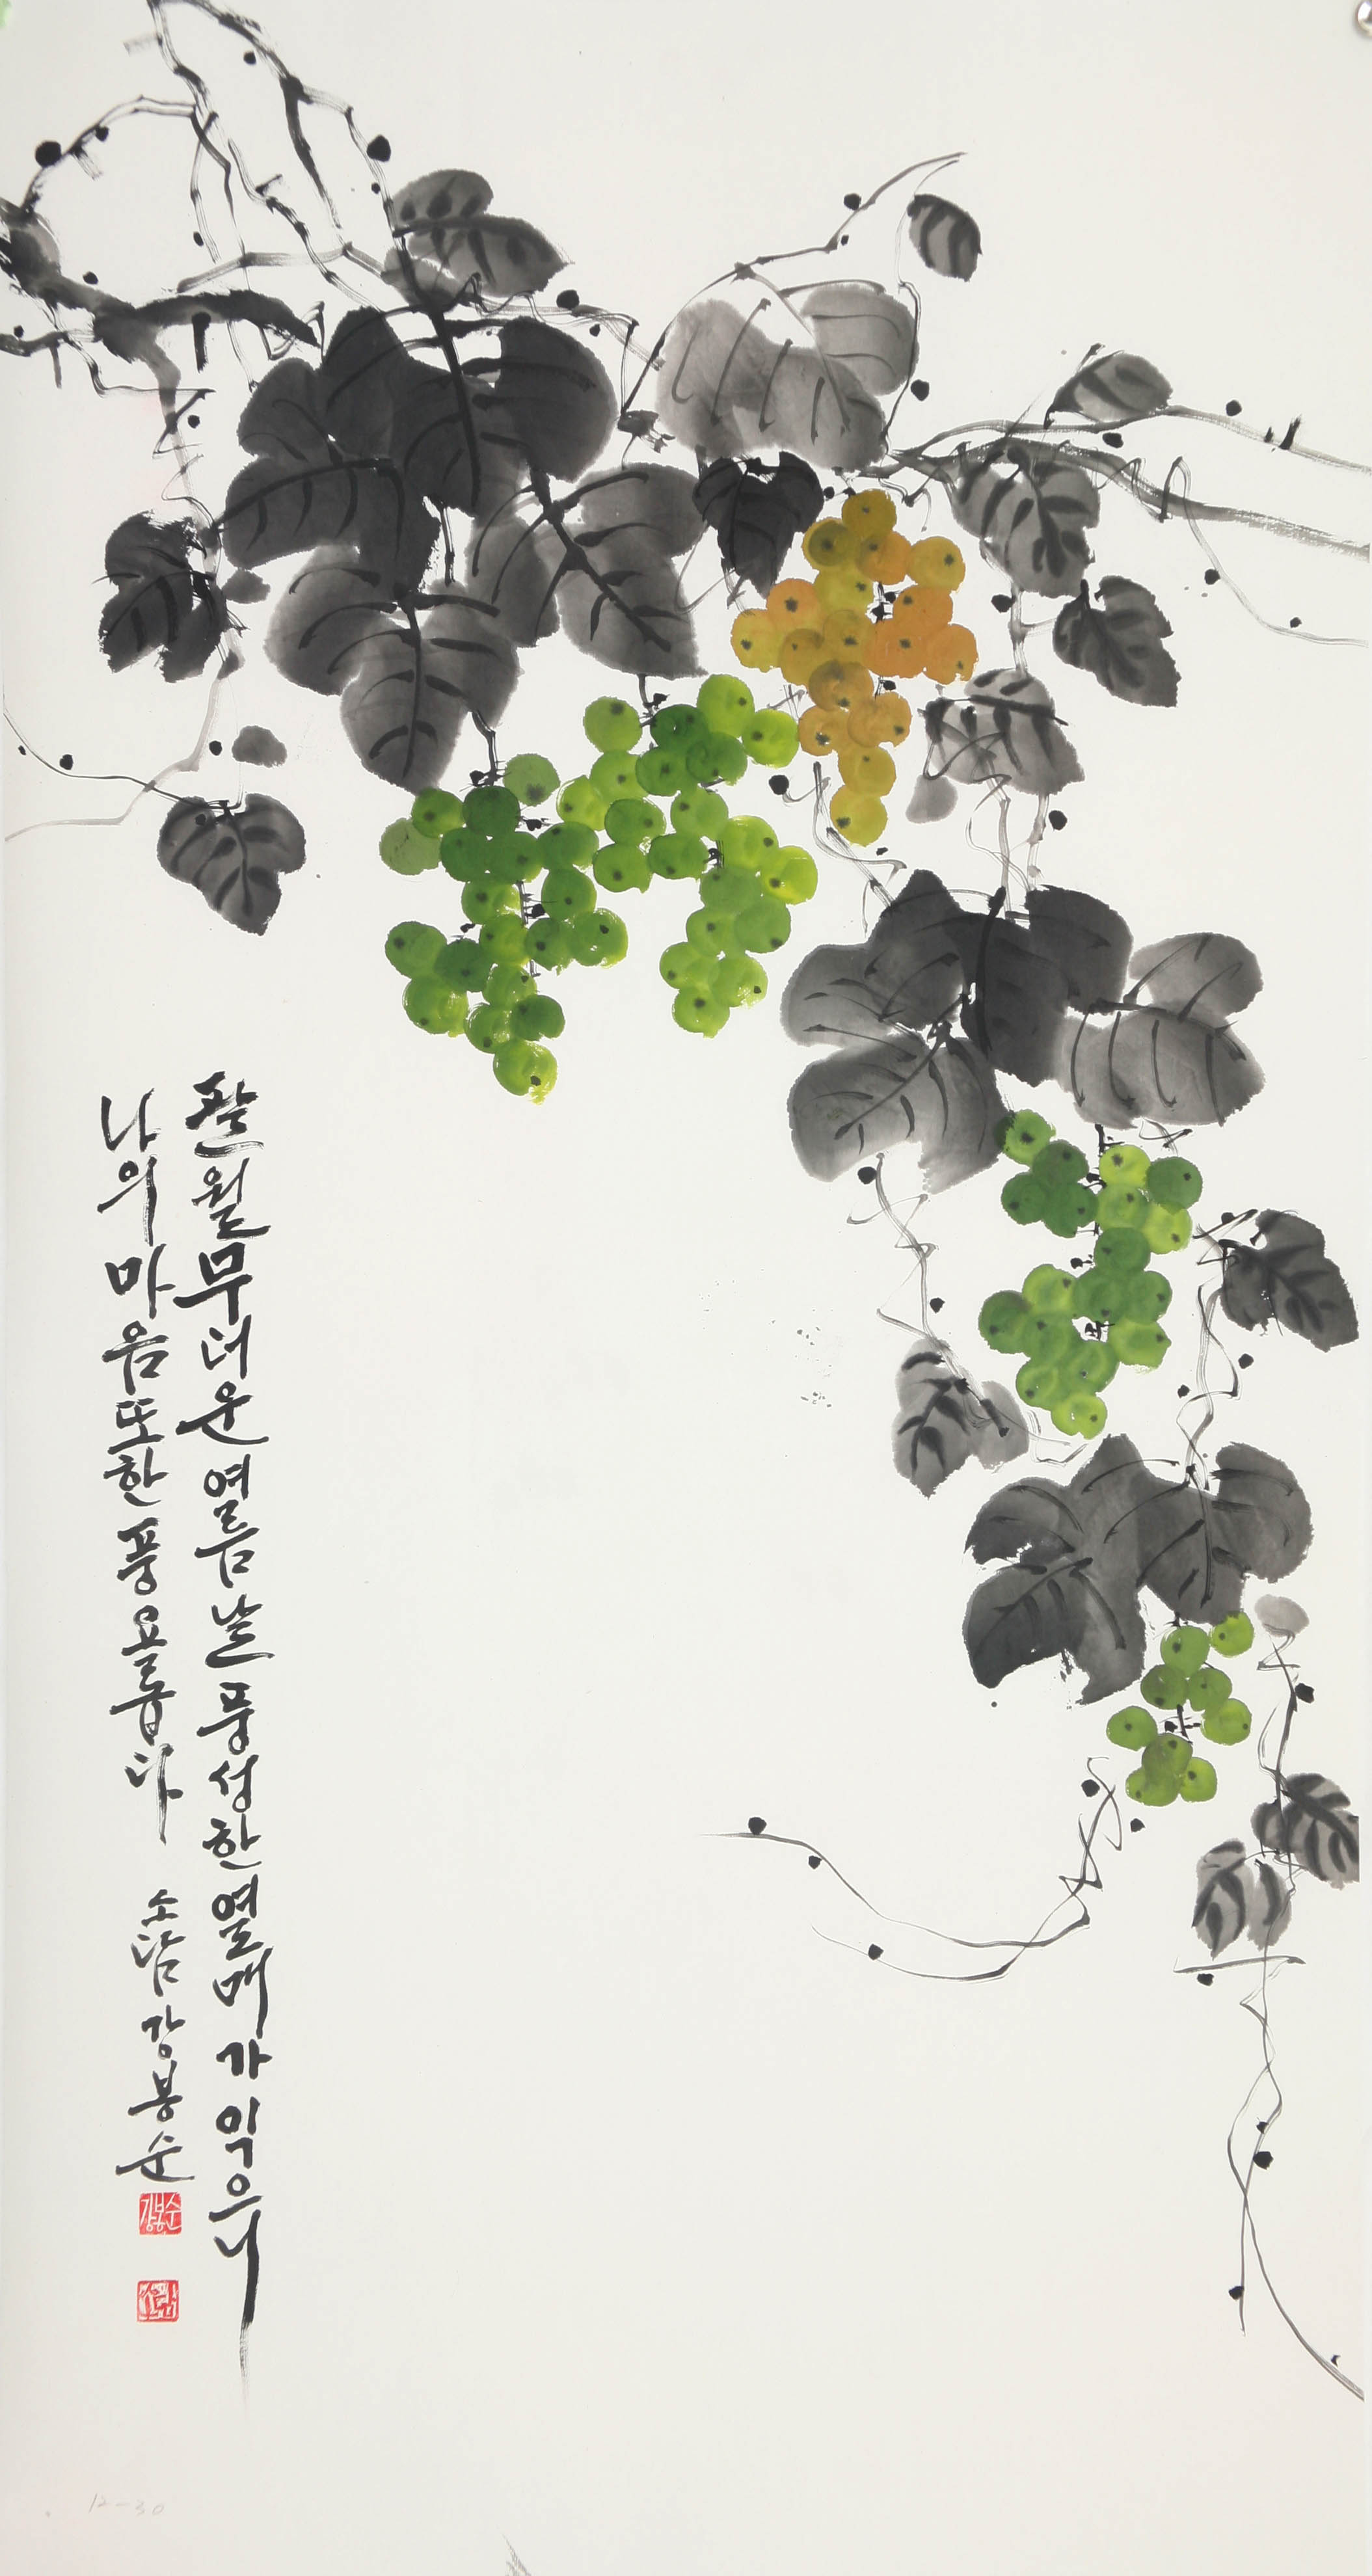 팔월 무더운 여름날 풍성한 열매가 익으니
나의 마음 또한 풍요롭다 소담 강봉순
강봉순
소담
12-30